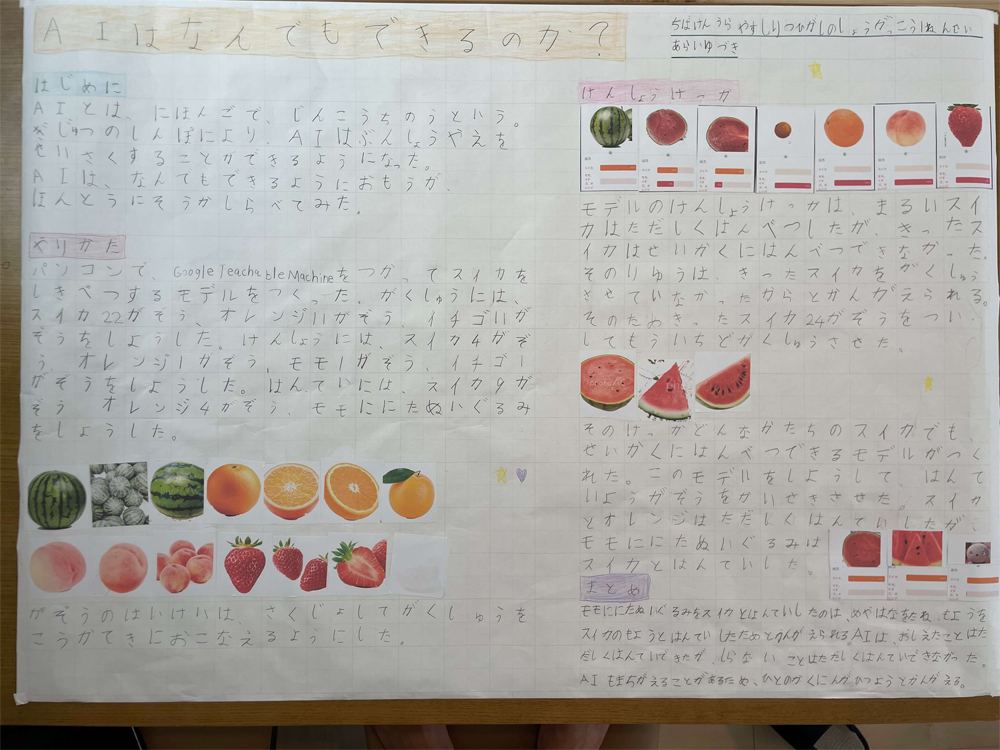 AIはなんでもできるのか?
ちばけんうらやすしりつひがしのしょうがっこう1ねんせい
あらいゆづき
はじめに
AIとは、にほんごで、じんこうちのうという。
ぎじゅつのしんぽにより、AIはぶんしょうやえを
せいさくすることができるようになった。
AIは、なんでもできるようにおもうが、
ほんとうにそうかしらべてみた。
やりかた
パソコンで、Google Teachable Machineをつかってスイカを
しきべつするモデルをつくった。がくしゅうには、
スイカ22がぞう、オレンジ11がぞう、イチゴ11が
ぞうをしようした。けんしょうには、スイカ4がぞ
う、オレンジ1がぞう、モモ1がぞう、イチゴ1
がぞうをしようした。はんていには、スイカ9が
ぞう オレンジ4がぞう、モモににたぬいぐるみ
をしようした。
がぞうのはいけいは、さくじょしてがくしゅうを
こうかてきにおこなえるようにした。
けんしょうけっか
モデルのけんしょうけっかは、まるいスイ
カはただしくはんべつしたが、きったス
イカはせいかくにはんべつできなかった。
そのりゆうは、きったスイカをがくしゅう
させていなかったからとかんがえられる。
そのためきったスイカ24がぞうをつい
してもういちどがくしゅうさせた。
そのけっかどんなかたちのスイカでも、
せいかくにはんべつできるモデルがつく
れた。このモデルをしようして、はんて
いようがぞうをかいせきさせた。スイカ
とオレンジはただしくはんていしたが、
モモににたぬいぐるみは
スイカとはんていした。
まとめ
モモににたぬいぐるみをスイカとはんていしたのは、めやはなをたね、もようを
スイカのもようとはんていしたためとかんがえられるAIは、おしえたことはた
だしくはんていできたが、しらないことはただしくはんていできなかった。
AIもまちがえることがあるため、ひとのかくにんがひつようとかんがえる。